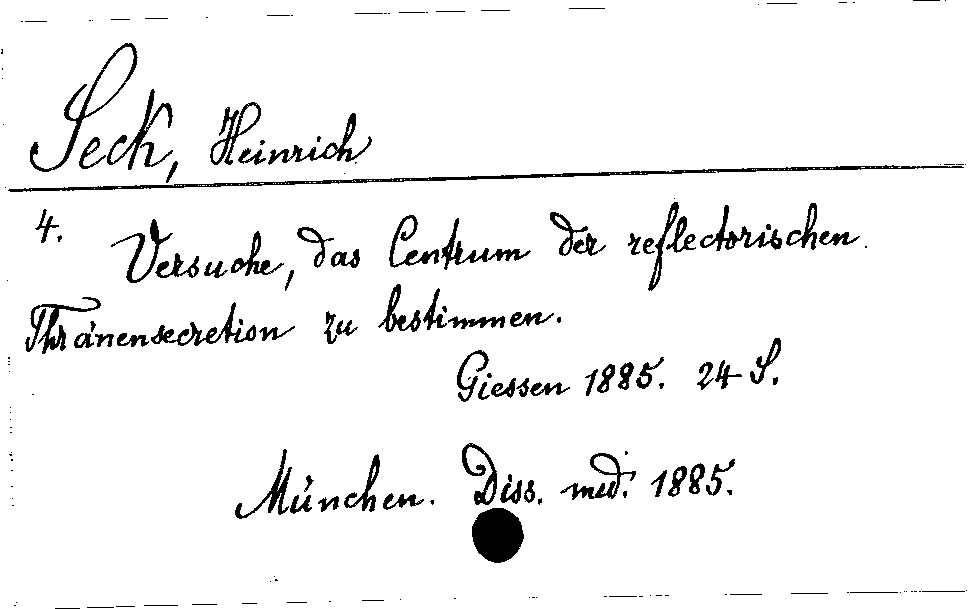 Seck, Heinrich
4. Versuche, das Centrum der reflectorischen
Thränensecretion zu bestimmen.
Giessen 1885. 24 S.
München. Diss. med. 1885.